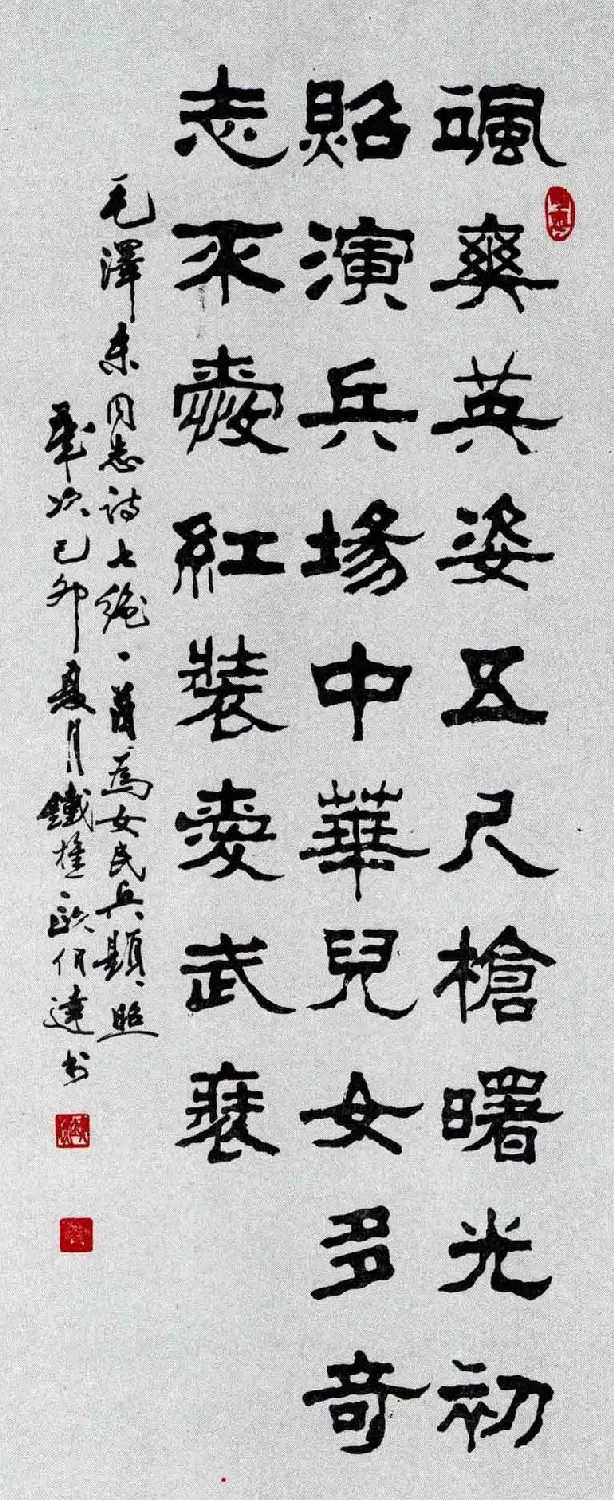 颯爽英姿五尺槍曙光初
照演兵場中華兒女多奇
志不愛紅裝愛武裝
毛澤東同志詩七絕一首為女民兵題照
歲次己卯夏月鐵歐伯達書